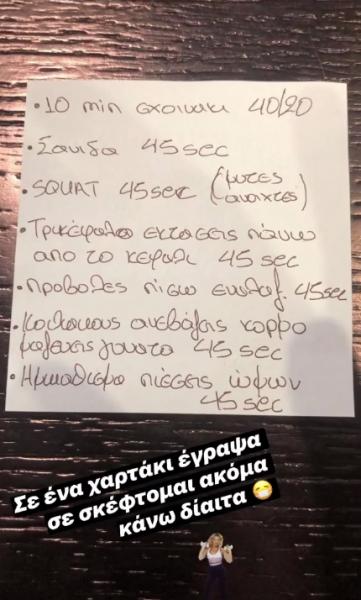 • 10 min σχοινακι 40/20
• Σανιδα 45 sec
• SQUAT 45 sec (μυτες ανοιχτες)
• Τρικέφαλα εκτασεις πανω
απο το κεφαλι 45 sec
• Προβολες πισω εναλλαξ. 45 sec
• Κοιλιακους ανεβάζεις κορμο
μαζευεις γονατα 45 sec
• Ημικαθισμα πιέσεις ώμων
45 sec
Σε ένα χαρτάκι έγραψα
σε σκέφτομαι ακόμα
κάνω δίαιτα